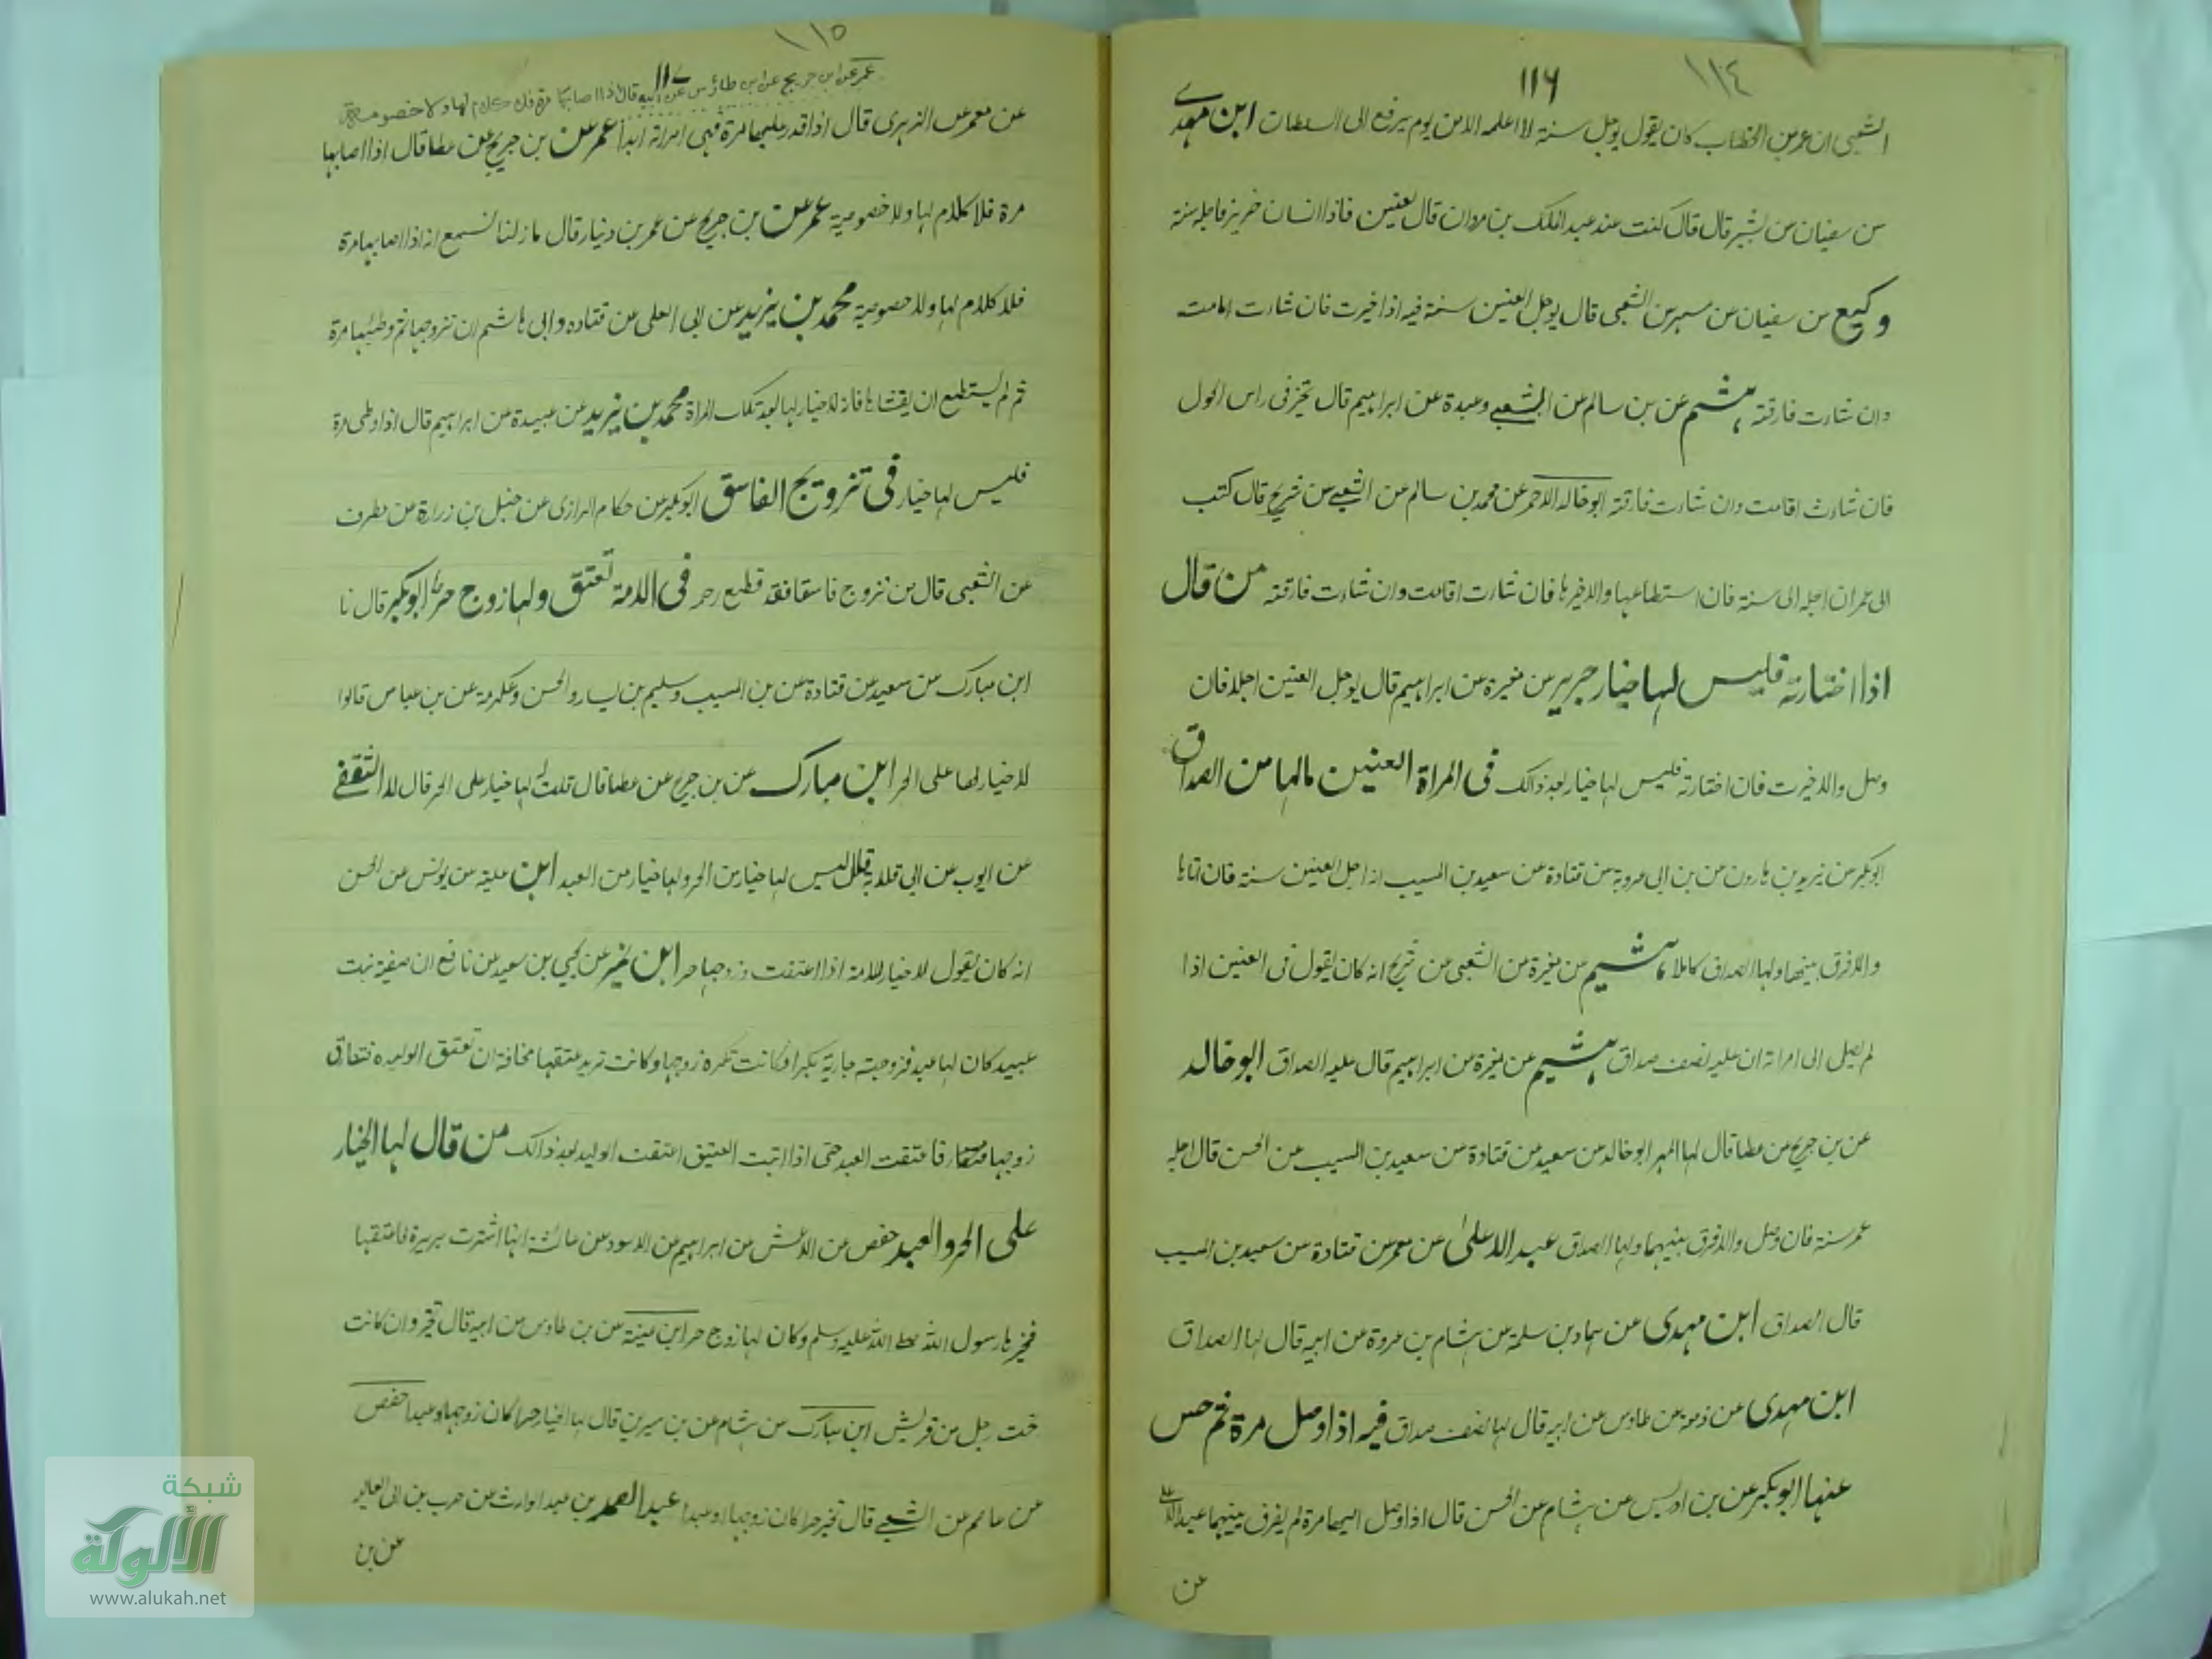 ١١٤
١١٦
الشعبى ان عمر بن الخطاب كان يقول يوجل سنة لا اعلمه الا من يوم يرفع الى السلطان ابن مهدے
عن سفيان عن بشير قال قال كنت عند عبد الملك بن مروان قال لعنين فاذا انسان فاجله سنة
وكيع عن سفيان عن عن الشعبى قال يوجل العنين سنة فيه اذا خيرت فان شارت اقامت
وان شارت فارقته هشيم عن بن سالم عن الشعبے وعبدة عن ابراهيم قال تخير فى راس الحول
فان شاءت اقامت وان شارت فارقته ابو خالد الاحمر عن محمد بن سالم عن الشعبے عن شريح قال كتب
الى عمران اجله الى سنة فان استطاعها والا خيرها فان شارت اقامت وان شاءت فارقته من قال
اذا اختارته فليس لها خيار جرير عن مغيرة عن ابراهيم قال يوجل العنين اجلا فان
وصل والا خيرت فان اختارته فليس لها خيار بعد ذالك فى المراة العنين مالها من الصداق
ابو بكر عن يزيد بن هارون عن بن ابى عروبة عن قتادة عن سعيد بن المسيب انه اجل العنين سنة فان اتاها
والا فرق بينهما ولها الصداق كاملا هشيم عن مغيرة عن الشعبى عن شريح انه كان يقول فى العنين اذا
لم يصل الى امراته ان عليه نصف صداق هشيم عن مغيرة عن ابراهيم قال عليه الصداق ابو خالد
عن بن جريج عن عطا قال لها المهر ابو خالد عن سعيد عن قتادة عن سعيد بن المسيب عن الحسن قال اجله
عمر سنة فان وصل والا فرق بينهما ولها الصداق عبد الاعلىٰ عن معمر عن قتادة عن سعيد بن المسيب
قال الصداق ابن مهدى عن حماد بن سلمة عن هشام بن عروة عن ابيه قال لها الصداق
ابن مهدى عن زمعة عن طاوس عن ابيه قال لها نصف صداق فيه اذا وصل مرة ثم حبس
عنها ابو بكر عن بن ادريس عن هشام عن الحسن قال اذا وصل اليها مرة لم يفرق بينهما عبد الاعلى
عن
١١٥
١١٧
عمر عن ابن جريج عن ابن طاؤس عن ابيه قال اذا اصابها مرة فلا كلام لها ولا خصومة
عن معمر عن الزهرى قال اذا قدر عليها مرة فهى امراته ابدا عمر عن بن جريج عن عطا قال اذا اصابها
مرة فلا كلام لها ولا خصومية عمر عن بن جريج عن عمر بن دينار قال مازلنا نسمع انه اذا اصابها مرة
فلا كلام لها ولا خصومية محمد بن يزيد عن ابى العلى عن قتاده وابى هاشم ان تزوجها ثم وطئها مرة
ثم لم يستطع ان يغشاها فانه لا خيار لها بعد تلك المراة محمد بن يزيد عن عبيدة عن ابراهيم قال اذا وطى مرة
فليس لها خيار فى تزويج الفاسق ابو بكر عن حكام الرازى عن خليل بن زرارة عن مطرف
عن الشعبى قال من تزوج فاسقا فقد قطع رحمه فى الامة تعتق ولها زوج حر ابو بكر قال نا
ابن مبارك عن سعيد عن قتادة عن بن المسيب وسليم بن يسار والحسن وعكرمة عن بن عباس قالوا
لا خيار لها على الحر ابن مبارك عن بن جريج عن عطا قال قلت الها خيار على الحر قال لا الثقفے
عن ايوب عن ابى قلابة قال ليس لها خيار من الحر ولها خيار من العبد ابن علية عن يونس عن الحسن
انه كان يقول لا خيار للامة اذا اعتقت وزوجها حر ابن نمير عن يحيى بن سعيد عن نافع ان صفية بنت
عبيد كان لها عبد فزوجته جارية بكرا وكانت تكره زوجها وكانت تريد عتقها مخافة ان تعتق الوليده فتفارق
زوجها فاعتقت العبد حتى اذا اتبت العتيق اعتقت الوليد بعد ذالك من قال لها الخيار
على الحر والعبد حفص عن الاعمش عن ابراهيم عن الاسود عن عائشة انها اشترت بريرة فاعتقها
فخيرها رسول الله صلى الله عليه وسلم وكان لها زوج حر ابن عيينة عن بن طاوس عن ابيه قال تخير وان كانت
تحت رجل من قريش ابن مبارك عن هشام عن بن سيرين قال لها الخيار حرا كان زوجها وعبدا حفص
عن عاصم عن الشعبے قال تخير حرا كان زوجها او عبدا عبد الصمد بن عبد الوارث عن حرب بن ابى العاليه
عن بن
شبكة
الألوكة
www.alukah.net